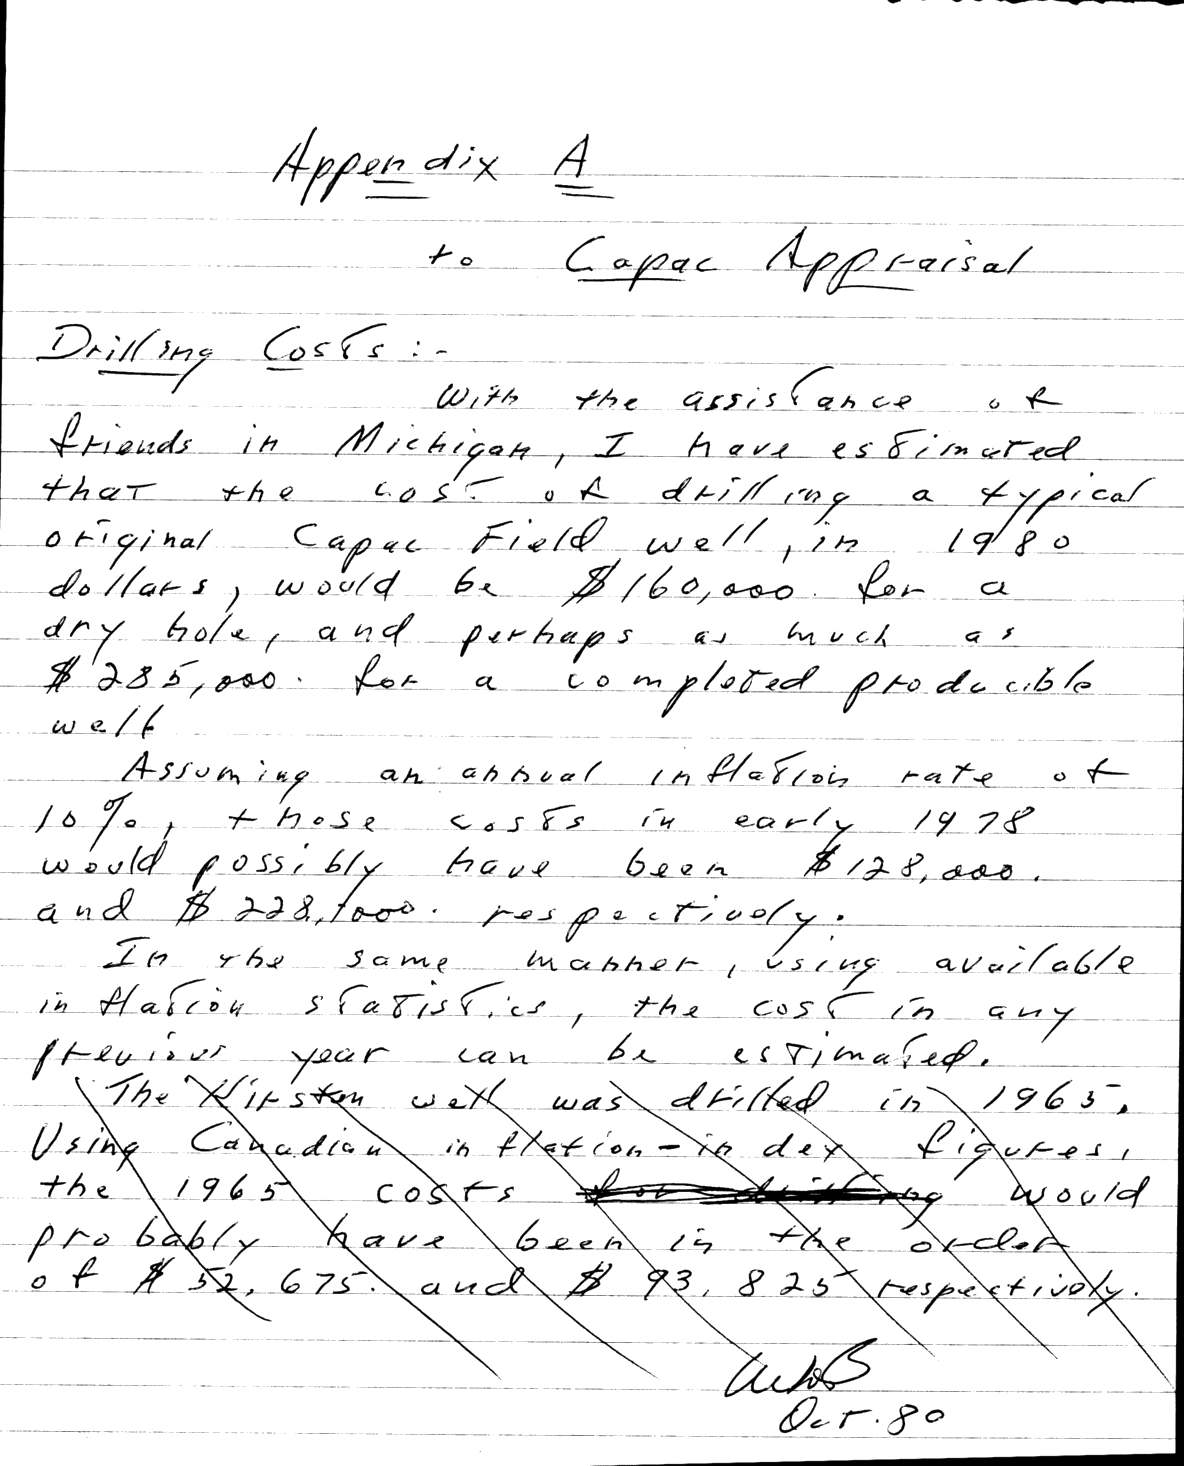 Appendix A
to Capac Appraisal
Drilling Costs :-
With the assistance of
friends in Michigan, I have estimated
that the cost of drilling a typical
original Capac Field well, in 1980
dollars, would be $160,000. for a
dry hole, and perhaps as much as
$285,000. for a completed producible
well.
Assuming an annual inflation rate of
10%, those costs in early 1978
would possibly have been $128,000.
and $228,000. respectively.
In the same manner, using available
inflation statistics, the cost in any
previous year can be estimated.
The well was drilled in 1965.
Using Canadian inflation-index figures,
the 1965 costs for drilling would
probably have been in the order
of $52,675. and $93,825 respectively.
Oct. 80